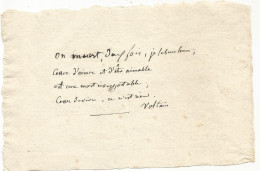 on meurt deux fois, je le vois bien;
Cesser d'aimer et d'être aimable
est une mort insupportable;
Cesser de vivre, ce n'est rien.
Voltaire